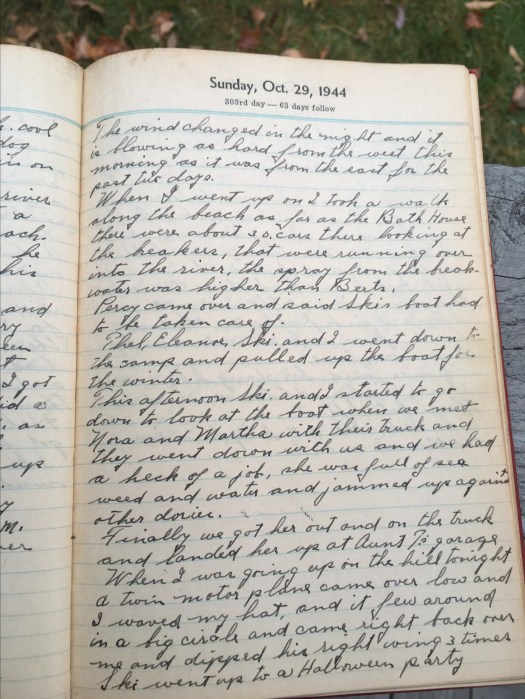 h. cool
dog
is on
river
a
ach.
he
his
and
ry
een
t
I got
id a
, as
up
y
M.
er
Sunday, Oct. 29, 1944
303rd day — 63 days follow
The wind changed in the night and it
is blowing as hard from the west this
morning as it was from the east for the
past two days.
When I went up on I took a walk
along the beach as far as the Bath House
there were about 30 cars there looking at
the breakers, that were running over
into the river, the spray from the break-
water was higher than Berts.
Percy came over and said Skis boat had
to be taken care of.
Eleanor, Ski. and I went down to
the camp and pulled up the boat for
the winter.
This afternoon Ski. and I started to go
down to look at the boat when we met
Nora and Martha with their truck and
they went down with us and we had
a heck of a job, she was full of sea
weed and water and jammed up against
other dories.
Finally we got her out and on the truck
and landed her up at Aunt T's garage
When I was going up on the hill tonight
a twin motor plane came over low and
I waved my hat, and it flew around
in a big circle and came right back over
me and dipped his right wing 3 times
Ski went up to a Halloween party